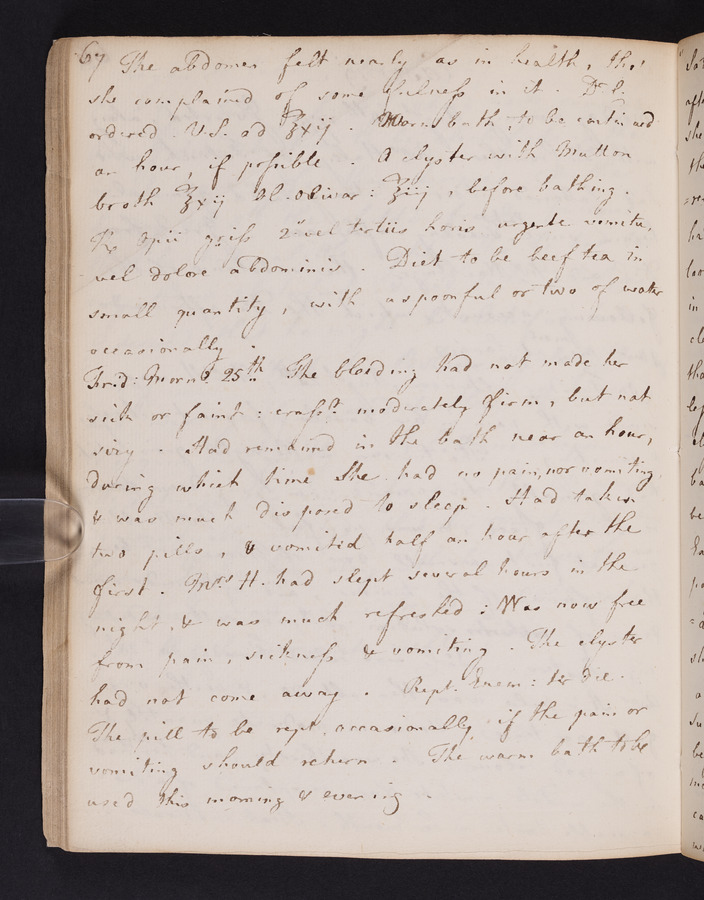 67 The abdomen felt nearly as in health, tho'
she complained of some fulness in it. Dr. C.
ordered V.S. ad ℥xij. Warm bath, to be continued
an hour, if possible. A clyster with Mutton
broth ℥xij Ol. Olivar: ℥iij, before bathing.
℞ Opii griss 2.a vel tertiis horis urgente vomitu,
vel dolore abdominis. Diet to be beef tea in
small quantity, with a spoonful or two of water
occasionally.
Frid: Morng. 25th. The bleeding had not made her
sick or faint: crasst. moderately firm, but not
sizy. Had remained in the bath near an hour,
during which time She had no pain, nor vomiting,
& was much disposed to sleep. Had taken
two pills, & vomited half an hour after the
first. Mrs H. had slept several hours in the
night, & was much refreshed: Was now free
from pain, sickness & vomiting. The clyster
had not come away. Rept. Enem: ter die.
The pill to be rept. occasionally if the pain or
vomiting should return. The warm bath to be
used this morning & evening.